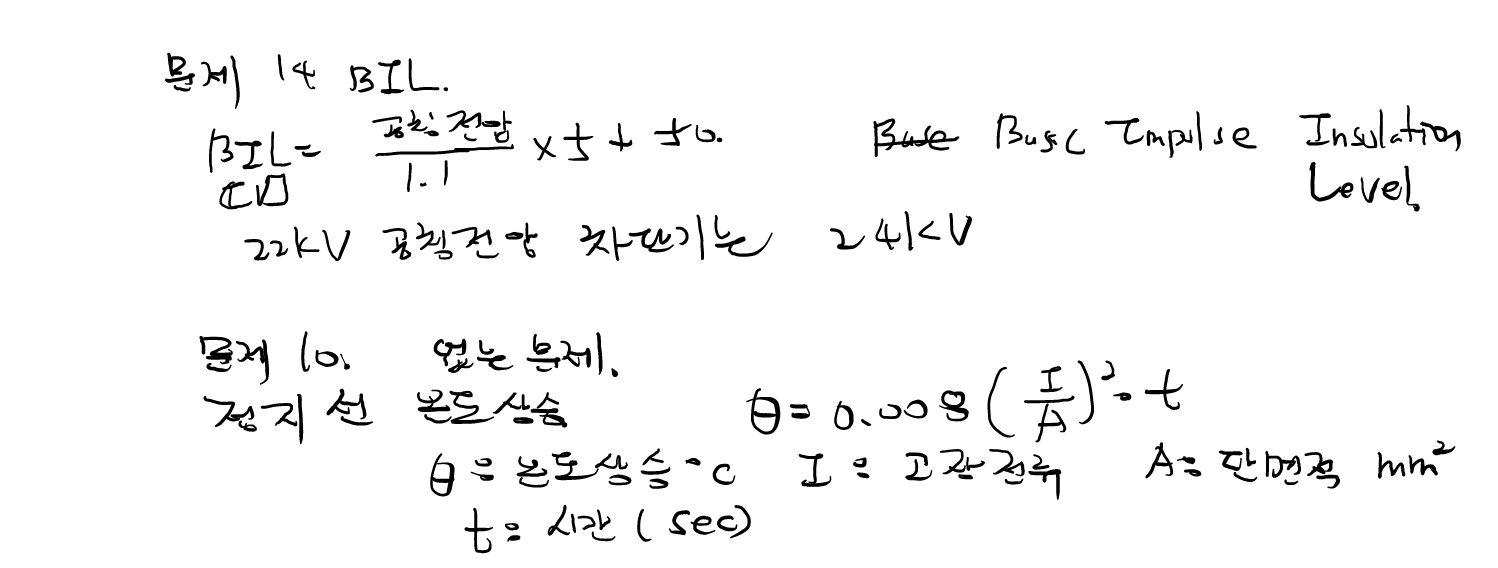 문제 14 BIL.
BIL = 공칭전압/1.1 × 5 + 50. Basic Impulse Insulation Level.
22kV 공칭전압 차단기는 24kV
문제 10. 없는 문제.
접지선 온도상승 θ = 0.008 (I/A)²·t
θ : 온도상승 °c I : 고장전류 A : 단면적 mm²
t : 시간 (sec)